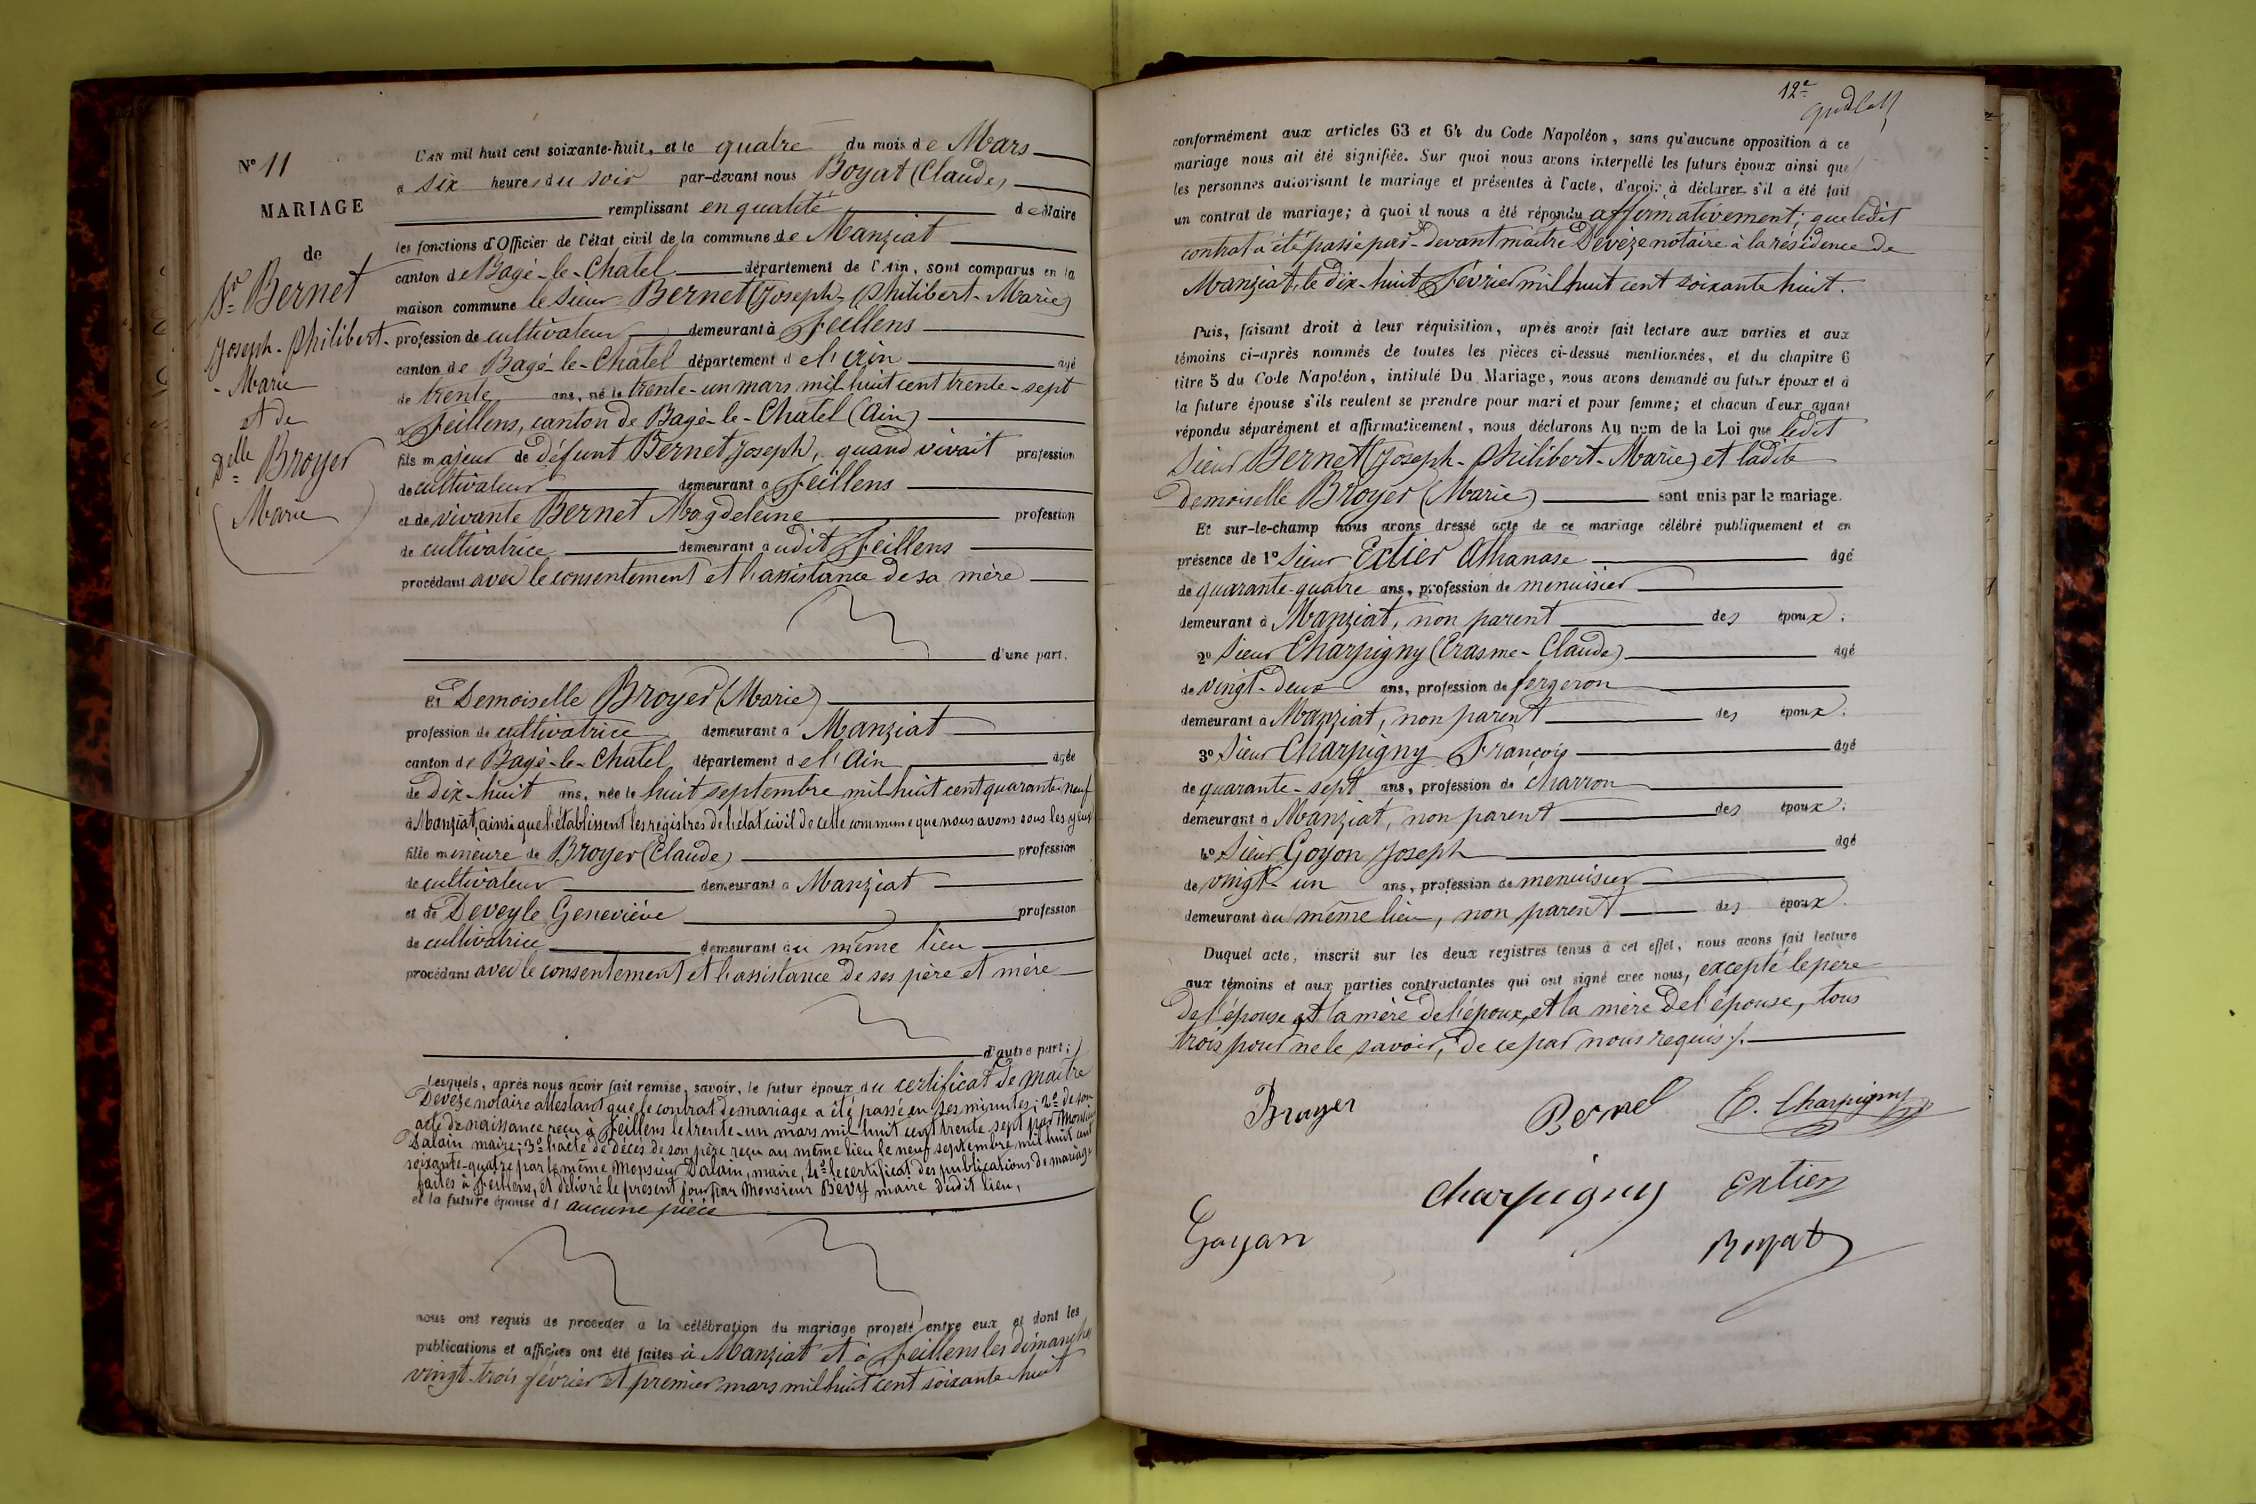 N° 11
MARIAGE
de
Sr Bernet
Joseph-Philibert-
-Marie
et de
Delle Broyer
(Marie)
L'an mil huit cent soixante-huit, et le quatre du mois de Mars
à six heures du soir par-devant nous Boyat (Claude)
remplissant en qualité de Maire
les fonctions d'Officier de l'état civil de la commune de Manziat
canton de Bagé-le-Chatel département de l'Ain, sont comparus en la
maison commune le sieur Bernet (Joseph-Philibert-Marie)
profession de cultivateur demeurant à Feillens
canton de Bagé-le-Chatel département de l'Ain âgé
de trente ans, né le trente-un mars mil huit cent trente-sept
à Feillens, canton de Bagé-le-Chatel (Ain)
fils majeur de défunt Bernet Joseph, quand vivait profession
de cultivateur demeurant à Feillens
et de vivante Bernet Magdeleine profession
de cultivatrice demeurant audit Feillens
procédant avec le consentement et l'assistance de sa mère
d'une part.
Et Demoiselle Broyer (Marie)
profession de cultivatrice demeurant à Manziat
canton de Bagé-le-Chatel département de l'Ain âgée
de Dix-huit ans, née le huit septembre mil huit cent quarante-neuf
à Manziat, ainsi que l'établissent les registres de l'état civil de cette commune que nous avons sous les yeux
fille mineure de Broyer (Claude) profession
de cultivateur demeurant à Manziat
et de Deveyle Geneviève profession
de cultivatrice demeurant au même lieu
procédant avec le consentement et l'assistance de ses père et mère
d'autre part;
Lesquels, après nous avoir fait remise, savoir, le futur époux du certificat de maître
Devèze notaire attestant que le contrat de mariage a été passé en ses minutes; 2° de son
acte de naissance reçu à Feillens le trente-un mars mil huit cent trente sept par Monsieur
Dalain maire; 3° l'acte de décès de son père reçu au même lieu le neuf septembre mil huit cent
soixante-quatre par le même Monsieur Dalain, maire, 4° le certificat des publications de mariage
faites à Feillens, et délivré le présent jour par Monsieur Bevy maire dudit lieu,
et la future épouse d' aucune pièce
nous ont requis de procéder à la célébration du mariage projeté entre eux et dont les
publications et affiches ont été faites à Manziat et à Feillens les dimanches
vingt-trois février et premier mars mil huit cent soixante-huit
12e
conformément aux articles 63 et 64 du Code Napoléon, sans qu'aucune opposition à ce
mariage nous ait été signifiée. Sur quoi nous avons interpellé les futurs époux ainsi que
les personnes autorisant le mariage et présentes à l'acte, d'avoir à déclarer s'il a été fait
un contrat de mariage; à quoi il nous a été répondu affirmativement; que ledit
contrat a été passé par-devant maître Devèze notaire à la résidence de
Manziat, le dix-huit Février mil huit cent soixante huit.
Puis, faisant droit à leur réquisition, après avoir fait lecture aux parties et aux
témoins ci-après nommés de toutes les pièces ci-dessus mentionnées, et du chapitre 6
titre 5 du Code Napoléon, intitulé Du Mariage, nous avons demandé au futur époux et à
la future épouse s'ils veulent se prendre pour mari et pour femme; et chacun d'eux ayant
répondu séparément et affirmativement, nous déclarons Au nom de la Loi que ledit
Sieur Bernet (Joseph-Philibert-Marie) et ladite
demoiselle Broyer (Marie) sont unis par le mariage.
Et sur-le-champ nous avons dressé acte de ce mariage célébré publiquement et en
présence de 1° Sieur Extier Athanase âgé
de quarante-quatre ans, profession de menuisier
demeurant à Manziat, non parent des époux;
2° Sieur Charpigny (Erasme-Claude) âgé
de vingt-deux ans, profession de forgeron
demeurant à Manziat, non parent des époux;
3° Sieur Charpigny François âgé
de quarante-sept ans, profession de charron
demeurant à Manziat, non parent des époux;
4° Sieur Goyon Joseph âgé
de vingt-un ans, profession de menuisier
demeurant au même lieu, non parent des époux.
Duquel acte, inscrit sur les deux registres tenus à cet effet, nous avons fait lecture
aux témoins et aux parties contractantes qui ont signé avec nous, excepté le père
de l'épouse et la mère de l'époux, et la mère de l'épouse, tous
trois pour ne le savoir, de ce par nous requis ./.
Broyer Bernet E. Charpigny
Charpigny Extier
Goyan Boyat